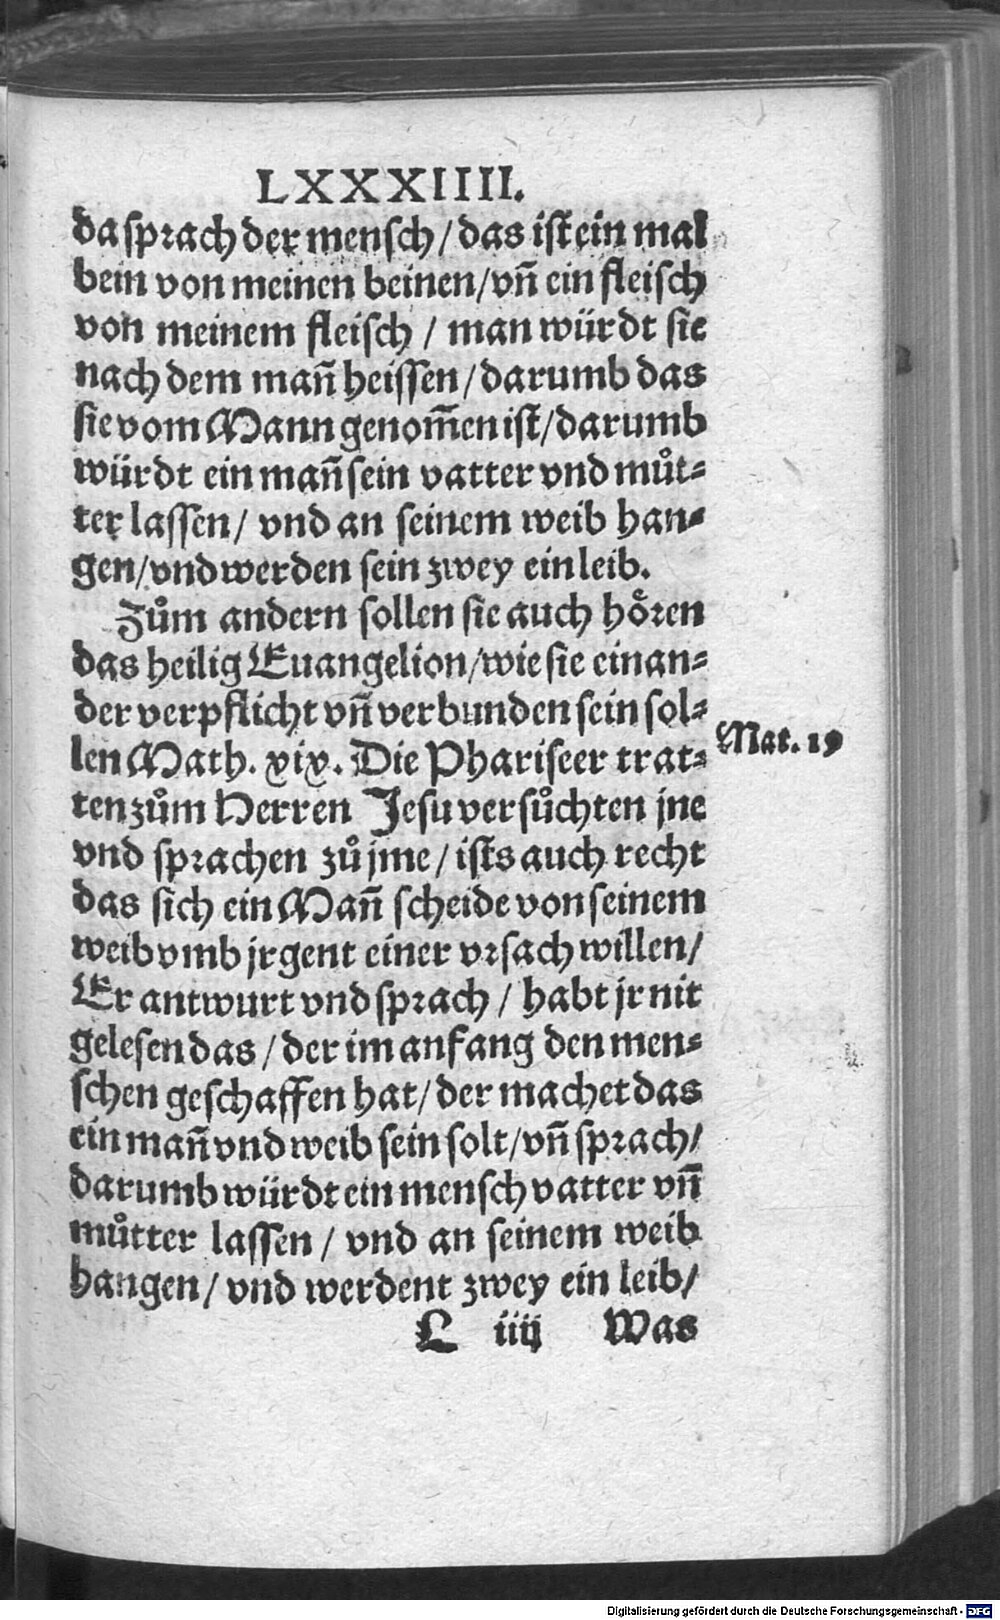 LXXXIIII.
da sprach der mensch / das ist ein mal
bein von meinen beinen / vñ ein fleisch
von meinem fleisch / man würdt sie
nach dem mañ heissen / darumb das
sie vom Mann genom̃en ist / darumb
würdt ein mañ sein vatter vnd můt-
ter lassen / vnd an seinem weib han-
gen / vnd werden sein zwey ein leib.
Zům andern sollen sie auch hören
das heilig Euangelion / wie sie einan-
der verpflicht vñ verbunden sein sol-
len Math. xix. Die Phariseer trat-
Mat. 19
ten zům Herren Jesu versůchten jne
vnd sprachen zů jme / ists auch recht
das sich ein Mañ scheide von seinem
weib vmb jrgent einer vrsach willen /
Er antwurt vnd sprach / habt jr nit
gelesen das / der im anfang den men-
schen geschaffen hat / der machet das
ein mañ vnd weib sein solt / vñ sprach /
darumb würdt ein mensch vatter vñ
můtter lassen / vnd an seinem weib
hangen / vnd werdent zwey ein leib /
L iiij Was
Digitalisierung gefördert durch die Deutsche Forschungsgemeinschaft - DFG